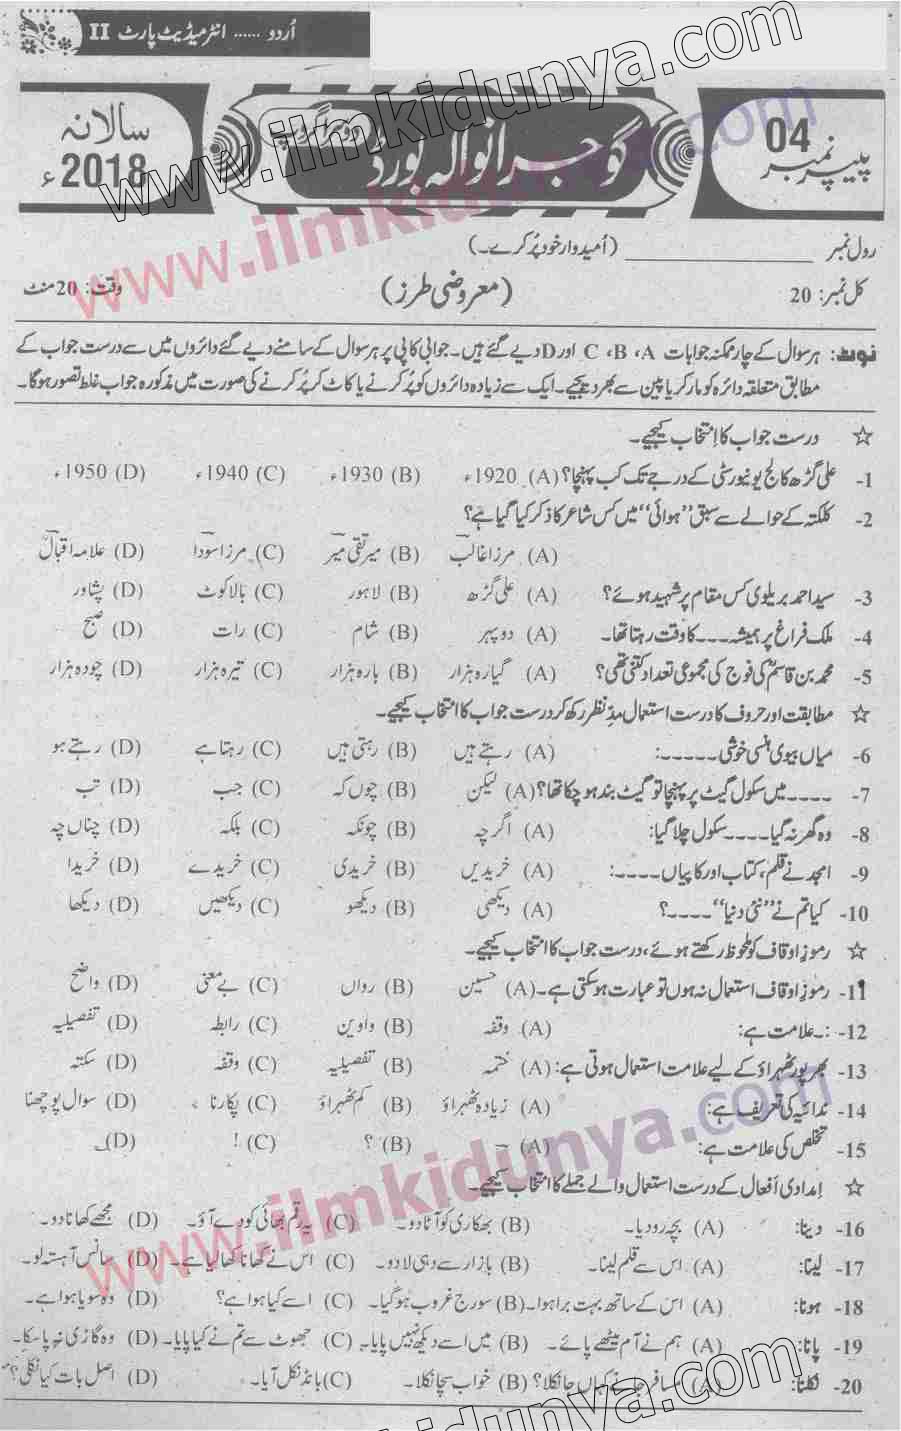 اُردو ...... انٹرمیڈیٹ پارٹ II
سالانہ 2018ء
گوجرانوالہ بورڈ
دوسرا گروپ
پیپر نمبر 04
رول نمبر ____________ (اُمیدوار خود پُر کرے۔)
کل نمبر: 20 (معروضی طرز) وقت: 20 منٹ
نوٹ: ہر سوال کے چار ممکنہ جوابات C ،B ،A اور D دیے گئے ہیں۔ جوابی کاپی پر ہر سوال کے سامنے دیے گئے دائروں میں سے درست جواب کے
مطابق متعلقہ دائرہ کو مارکر یا پین سے بھر دیجیے۔ ایک سے زیادہ دائروں کو پُر کرنے یا کاٹ کر پُر کرنے کی صورت میں مذکورہ جواب غلط تصور ہوگا۔
☆ درست جواب کا اِنتخاب کیجیے۔
1- علی گڑھ کالج یونیورسٹی کے درجے تک کب پہنچا؟ (A) 1920ء (B) 1930ء (C) 1940ء (D) 1950ء
2- کلکتہ کے حوالے سے سبق ”ہوائی“ میں کس شاعر کا ذکر کیا گیا ہے؟
(A) مرزا غالب (B) میر تقی میر (C) مرزا سودا (D) علامہ اقبالؒ
3- سید احمد بریلوی کس مقام پر شہید ہوئے؟ (A) علی گڑھ (B) لاہور (C) بالاکوٹ (D) پشاور
4- ملک فراغ پر ہمیشہ ۔۔۔۔ کا وقت رہتا تھا۔ (A) دوپہر (B) شام (C) رات (D) صبح
5- محمد بن قاسمؒ کی فوج کی مجموعی تعداد کتنی تھی؟ (A) گیارہ ہزار (B) بارہ ہزار (C) تیرہ ہزار (D) چودہ ہزار
☆ مطابقت اور حروف کا درست استعمال مدِنظر رکھ کر درست جواب کا انتخاب کیجیے۔
6- میاں بیوی ہنسی خوشی ۔۔۔۔۔: (A) رہتے ہیں (B) رہتی ہیں (C) رہتا ہے (D) رہتے ہو
7- ۔۔۔۔ میں سکول گیٹ پر پہنچا تو گیٹ بند ہو چکا تھا؟ (A) لیکن (B) چوں کہ (C) جب (D) تب
8- وہ گھر نہ گیا ۔۔۔۔ سکول چلا گیا: (A) اگرچہ (B) چونکہ (C) بلکہ (D) چناں چہ
9- امجد نے قلم، کتاب اور کاپیاں ۔۔۔۔: (A) خریدیں (B) خریدی (C) خریدے (D) خریدا
10- کیا تم نے ”نئی دنیا“ ۔۔۔۔؟ (A) دیکھی (B) دیکھو (C) دیکھیں (D) دیکھا
☆ رموزِ اوقاف کو ملحوظ رکھتے ہوئے، درست جواب کا انتخاب کیجیے۔
11- رموزِ اوقاف استعمال نہ ہوں تو عبارت ہو سکتی ہے۔ (A) حسین (B) رواں (C) بے معنی (D) واضح
12- :۔ علامت ہے: (A) وقفہ (B) واوین (C) رابطہ (D) تفصیلیہ
13- بھرپور ٹھہراؤ کے لیے علامت استعمال ہوتی ہے: (A) ختمہ (B) تفصیلیہ (C) وقفہ (D) سکتہ
14- ندائیہ کی تعریف ہے: (A) زیادہ ٹھہراؤ (B) کم ٹھہراؤ (C) پکارنا (D) سوال پوچھنا
15- تخلص کی علامت ہے: (A) ؔ (B) ؟ (C) ! (D) ۔
☆ اِمدادی اَفعال کے درست استعمال والے جملے کا انتخاب کیجیے۔
16- دینا: (A) بچہ رو دیا۔ (B) بھکاری کو آٹا دو۔ (C) یہ رقم بھائی کو دے آؤ۔ (D) مجھے کھانا دو۔
17- لینا: (A) اس سے قلم لینا۔ (B) بازار سے دہی لا دو۔ (C) اس نے کھانا کھا لیا ہے۔ (D) سانس آہستہ لو۔
18- ہونا: (A) اس کے ساتھ بہت برا ہوا۔ (B) سورج غروب ہو گیا۔ (C) اسے کیا ہوا ہے؟ (D) وہ سویا ہوا ہے۔
19- پانا: (A) ہم نے آم میٹھے پائے۔ (B) میں اسے دیکھ نہیں پایا۔ (C) جھوٹ سے تم نے کیا پایا۔ (D) وہ گاڑی نہ پا سکا۔
20- نکلنا: (A) مسافر جانے کہاں جا نکلا؟ (B) خواب سچا نکلا۔ (C) بانڈ نکل آیا۔ (D) اصل بات کیا نکلی؟
www.ilmkidunya.com
www.ilmkidunya.com
www.ilmkidunya.com
www.ilmkidunya.com